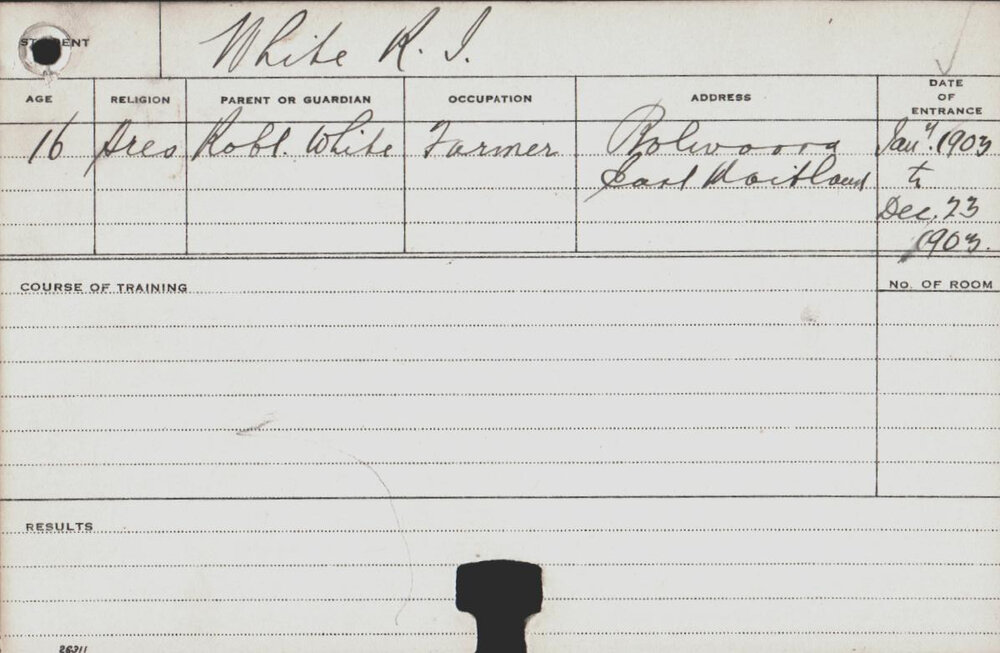 STUDENT White R. I.
AGE RELIGION PARENT OR GUARDIAN OCCUPATION ADDRESS DATE OF ENTRANCE
16 Pres Robt. White Farmer Bolwarra Jany. 1903
East Maitland to
Dec. 23
1903.
COURSE OF TRAINING NO. OF ROOM
RESULTS
26211